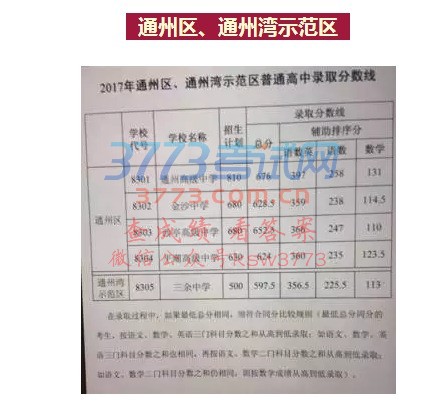 通州区、通州湾示范区
2017年通州区、通州湾示范区普通高中录取分数线
学校代号 学校名称 招生计划 录取分数线
总分 辅助排序分
语数英 语数 数学
通州区 8301 通州高级中学 810 676 397 258 131
8302 金沙中学 680 628.5 359 238 114.5
8303 高级中学 680 652.5 366 247 110
8304 高级中学 630 624 360 235 123.5
通州湾示范区 8305 三余中学 500 597.5 356.5 225.5 113
3773考试网
查成绩 看答案
微信公众号KSW3773
在录取过程中,如果最低总分相同,则将合同分比较规则(最低总分同分的
考生,按语文、数学、英语三门科目分数之和从高到低录取;如语文、数学、英
语三门科目分数之和也相同,再按语文、数学二门科目分数之和从高到低录取;
如语文、数学二门科目分数之和仍相同,则按数学成绩从高到低录取)。